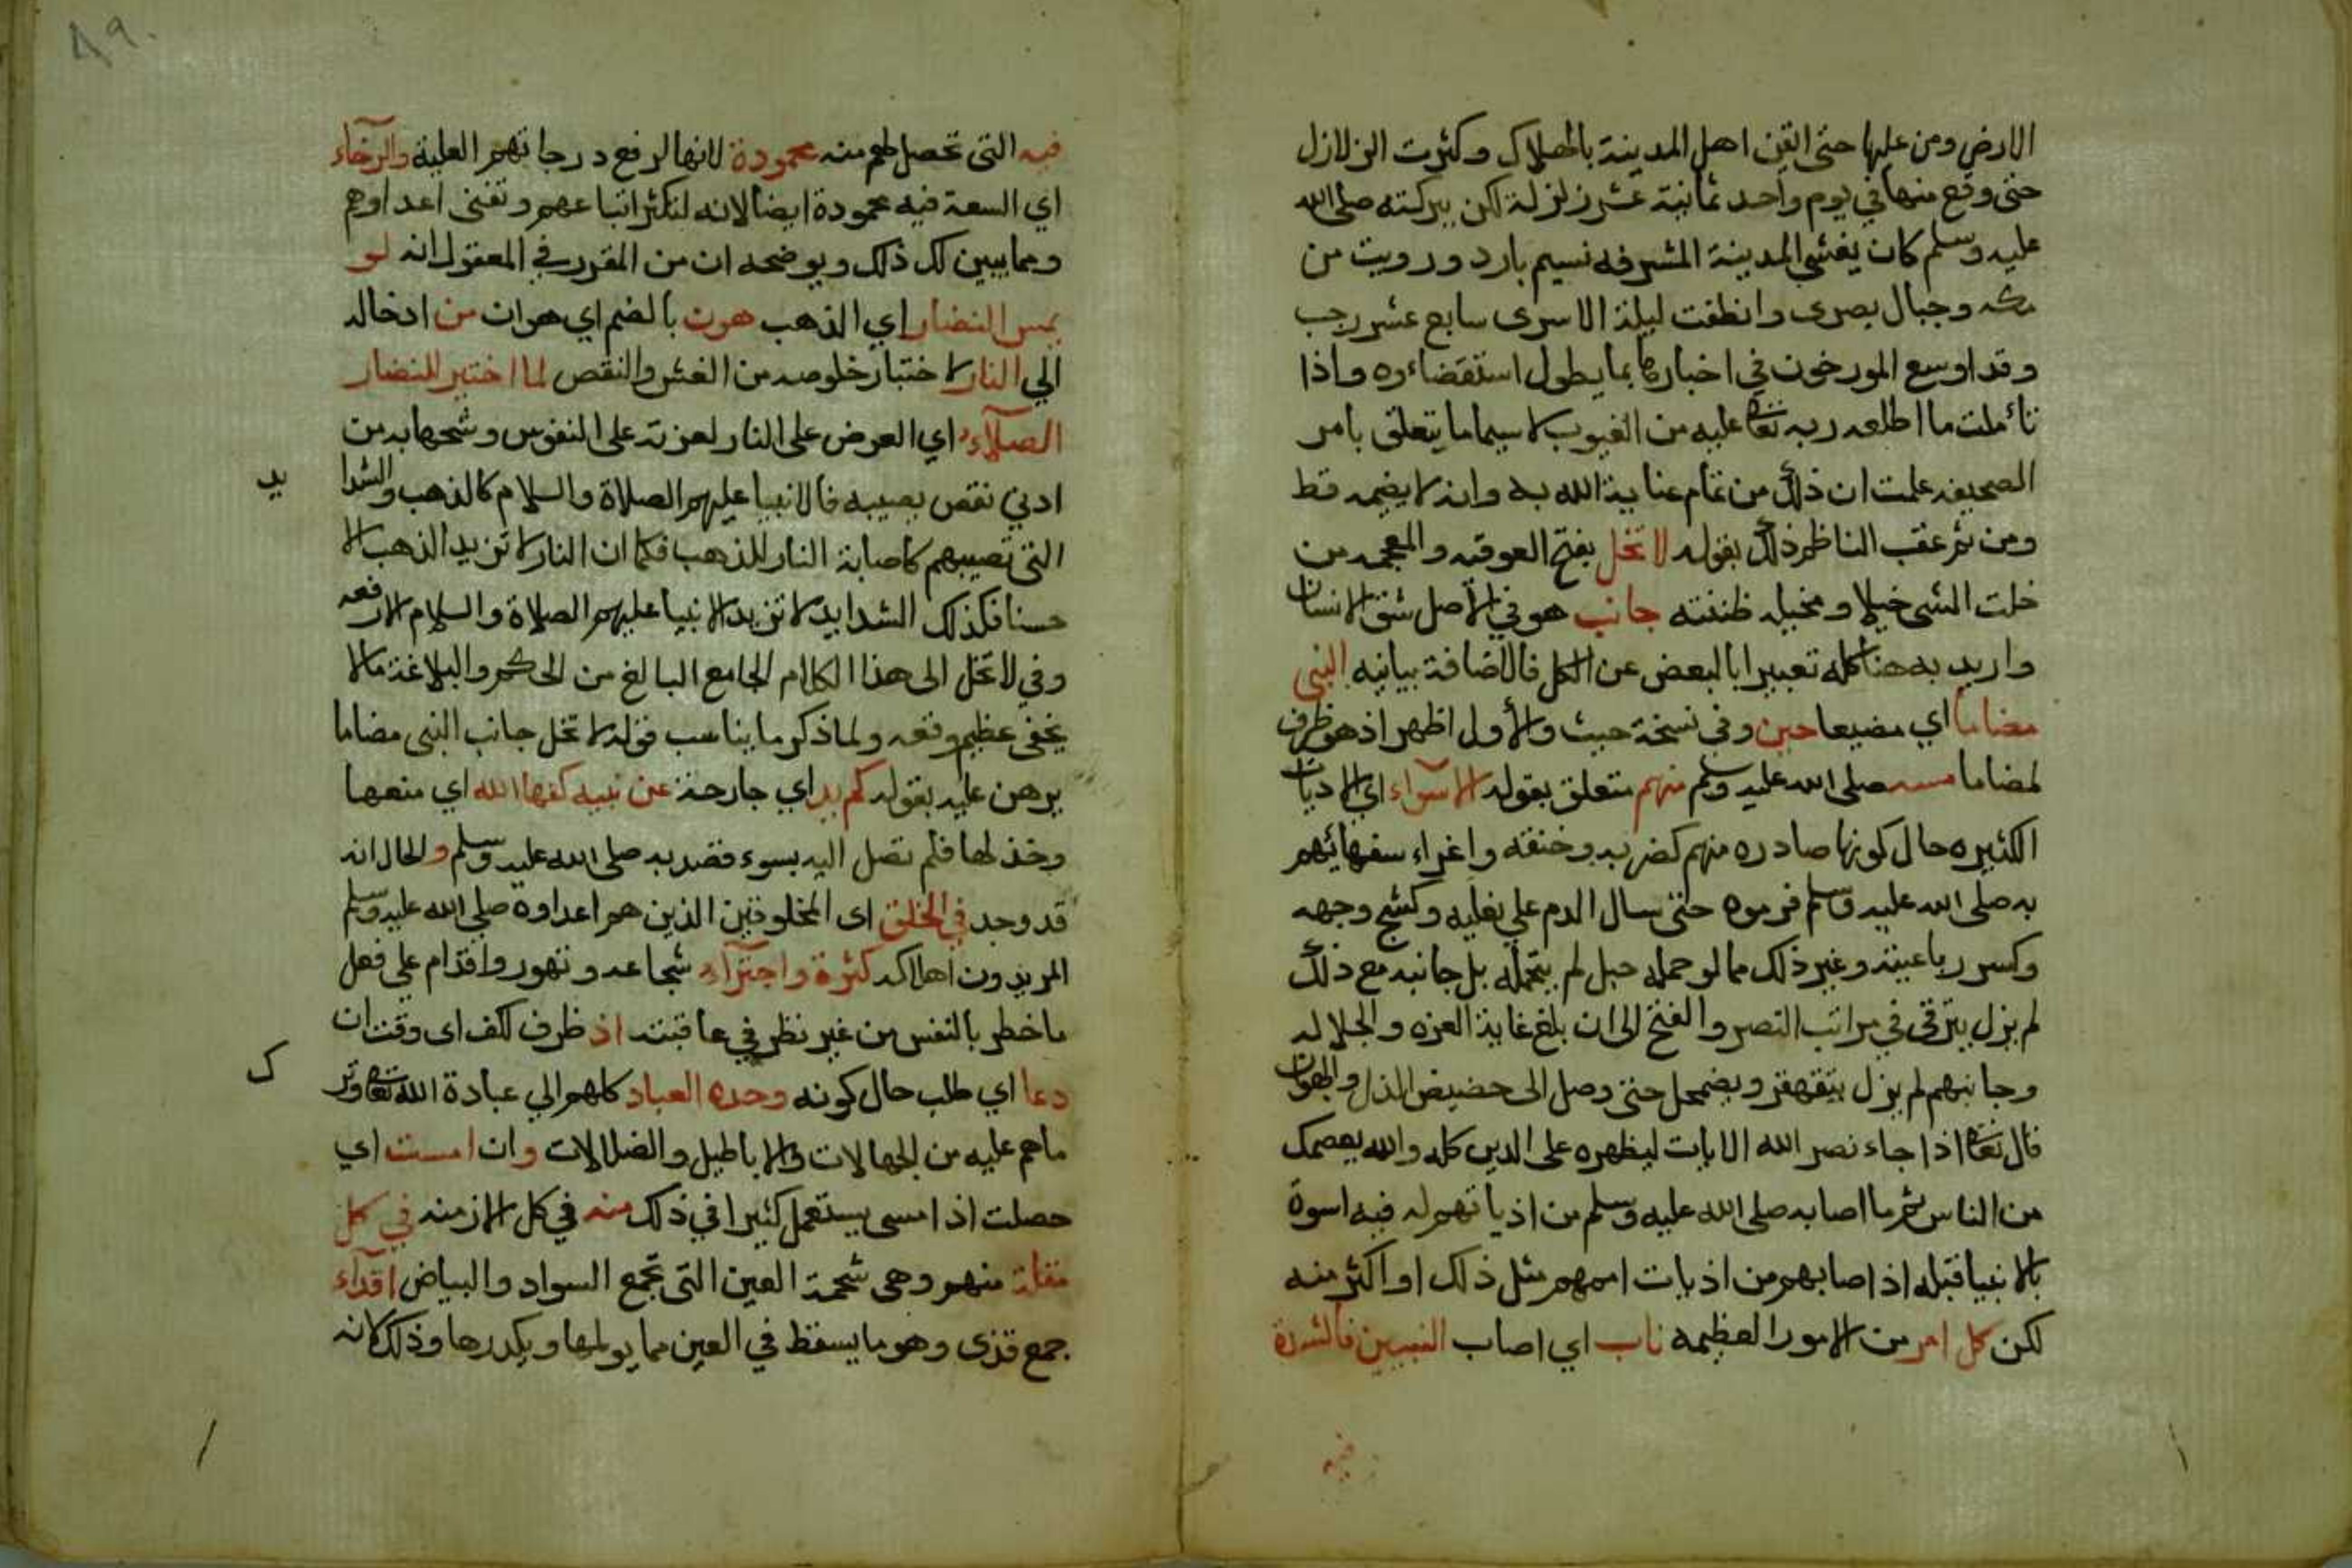 الارض ومن عليها حتى ايقن اهل المدينة بالهلاك وكثرت الزلازل
حتى وقع منها في يوم واحد ثمانية عشر زلزلة لكن ببركته صلى الله
عليه وسلم كان يغشى المدينة المشرفه نسيم بارد ورويت من
مكه وجبال بصرى وانطفت ليلة الاسرى سابع عشر رجب
وقد اوسع المورخون في اخبارها بما يطول استقضاءه واذا
تأملت ما اطلعه ربه تعا عليه من الغيوب لا سيما ما يتعلق بامر
الصحيفه علمت ان ذلك من تمام عناية الله به وانه لا يضيمه قط
ومن ثم عقب الناظم ذلك بقوله لا تخل بفتح الفوقيه والمعجمه من
خلت الشي خيلا ومخيله ظننته جانب هو في الاصل شق الانسان
واريد به هنا كله تعبيرا بالبعض عن الكل فالاضافة بيانيه النبي
مضاما اي مضيعا حين وفي نسخة حيث والأول اظهر اذ هو ظرف
لمضاما مسه صلى الله عليه وسلم منهم متعلق بقوله الاسوآء اي الاذيات
الكثيره حال كونها صادره منهم كضربه وخنقه واغراء سفهائهم
به صلى الله عليه وسلم فرموه حتى سال الدم علي نعليه وكشج وجهه
وكسر رباعيته وغير ذلك مما لو حمله جبل لم يتحمله بل جانبه مع ذلك
لم يزل يترقى في مراتب النصر والفتح الى ان بلغ غاية العزه والجلاله
وجانبهم لم يزل يتقهقر ويضمحل حتى وصل الى حضيض الذل والهوان
قال تعا اذا جاء نصر الله الايات ليظهره على الدين كله والله يعصمك
من الناس ثم ما اصابه صلى الله عليه وسلم من اذياتهم له فيه اسوة
بالانبيا قبله اذ اصابهم من اذيات اممهم مثل ذلك او اكثر منه
لكن كل امر من الامور العظيمه ناب اي اصاب النبيين فالشدة
فيه
٨٩
فيه التى تحصل لهم منه محمودة لانها لرفع درجاتهم العلية والرخآء
اي السعة فيه محمودة ايضا لانه لتكثر اتباعهم وتفنى اعداوهم
ومما يبين لك ذلك ويوضحه ان من المقرر في المعقول انه لو
يمس النضار اي الذهب هون بالضم اي هوان من ادخاله
الي النار لاختبار خلوصه من الغش والنقص لما اختير للنضار
الصلآء اي العرض على النار لعزته على النفوس وشحها به من
ادني نقص يصيبه فالانبيا عليهم الصلاة والسلام كالذهب والشدا
يد
التى تصيبهم كاصابة النار للذهب فكما ان النار لا تزيد الذهب الا
حسنا فكذلك الشدايد لا تزيد الانبيا عليهم الصلاة والسلام الا رفعه
وفي لا تخل الى هذا الكلام الجامع البالغ من الحكم والبلاغة ما لا
يخفى عظيم وقعه ولما ذكر ما يناسب قوله لا تخل جانب النبى مضاما
برهن عليه بقوله كم يد اي جارحة عن نبيه كفها الله اي منعها
وخذلها فلم تصل اليه بسوء قصد به صلى الله عليه وسلم والحال انه
قد وجد في الخلق اى المخلوقين الذين هم اعداوه صلى الله عليه وسلم
المريدون اهلاكه كثرة واجترآء شجاعه وتهور واقدام على فعل
ما خطر بالنفس من غير نظر في عاقبته اذ ظرف لكف اى وقت ان
دعا اي طلب حال كونه وحده العباد كلهم الي عبادة الله تعا وتر
ك
ما هم عليه من الجهالات والاباطيل والضلالات وان امست اي
حصلت اذ امسى يستعمل كثيرا في ذلك منه في كل الازمنه في كل
مقلة منهم وهى شحمة العين التى تجمع السواد والبياض اقذآء
جمع قذى وهو ما يسقط في العين مما يولمها ويكدرها وذلك لانه